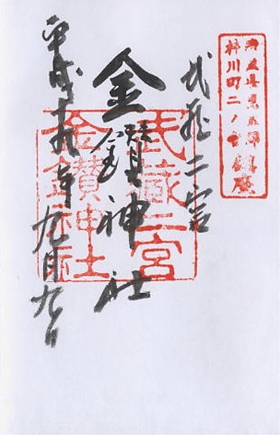 埼玉県児玉郡
神川町二ノ宮鎮座
武蔵二宮
武蔵二宮
金鑚神社
金鑚神社
平成十九年九月九日